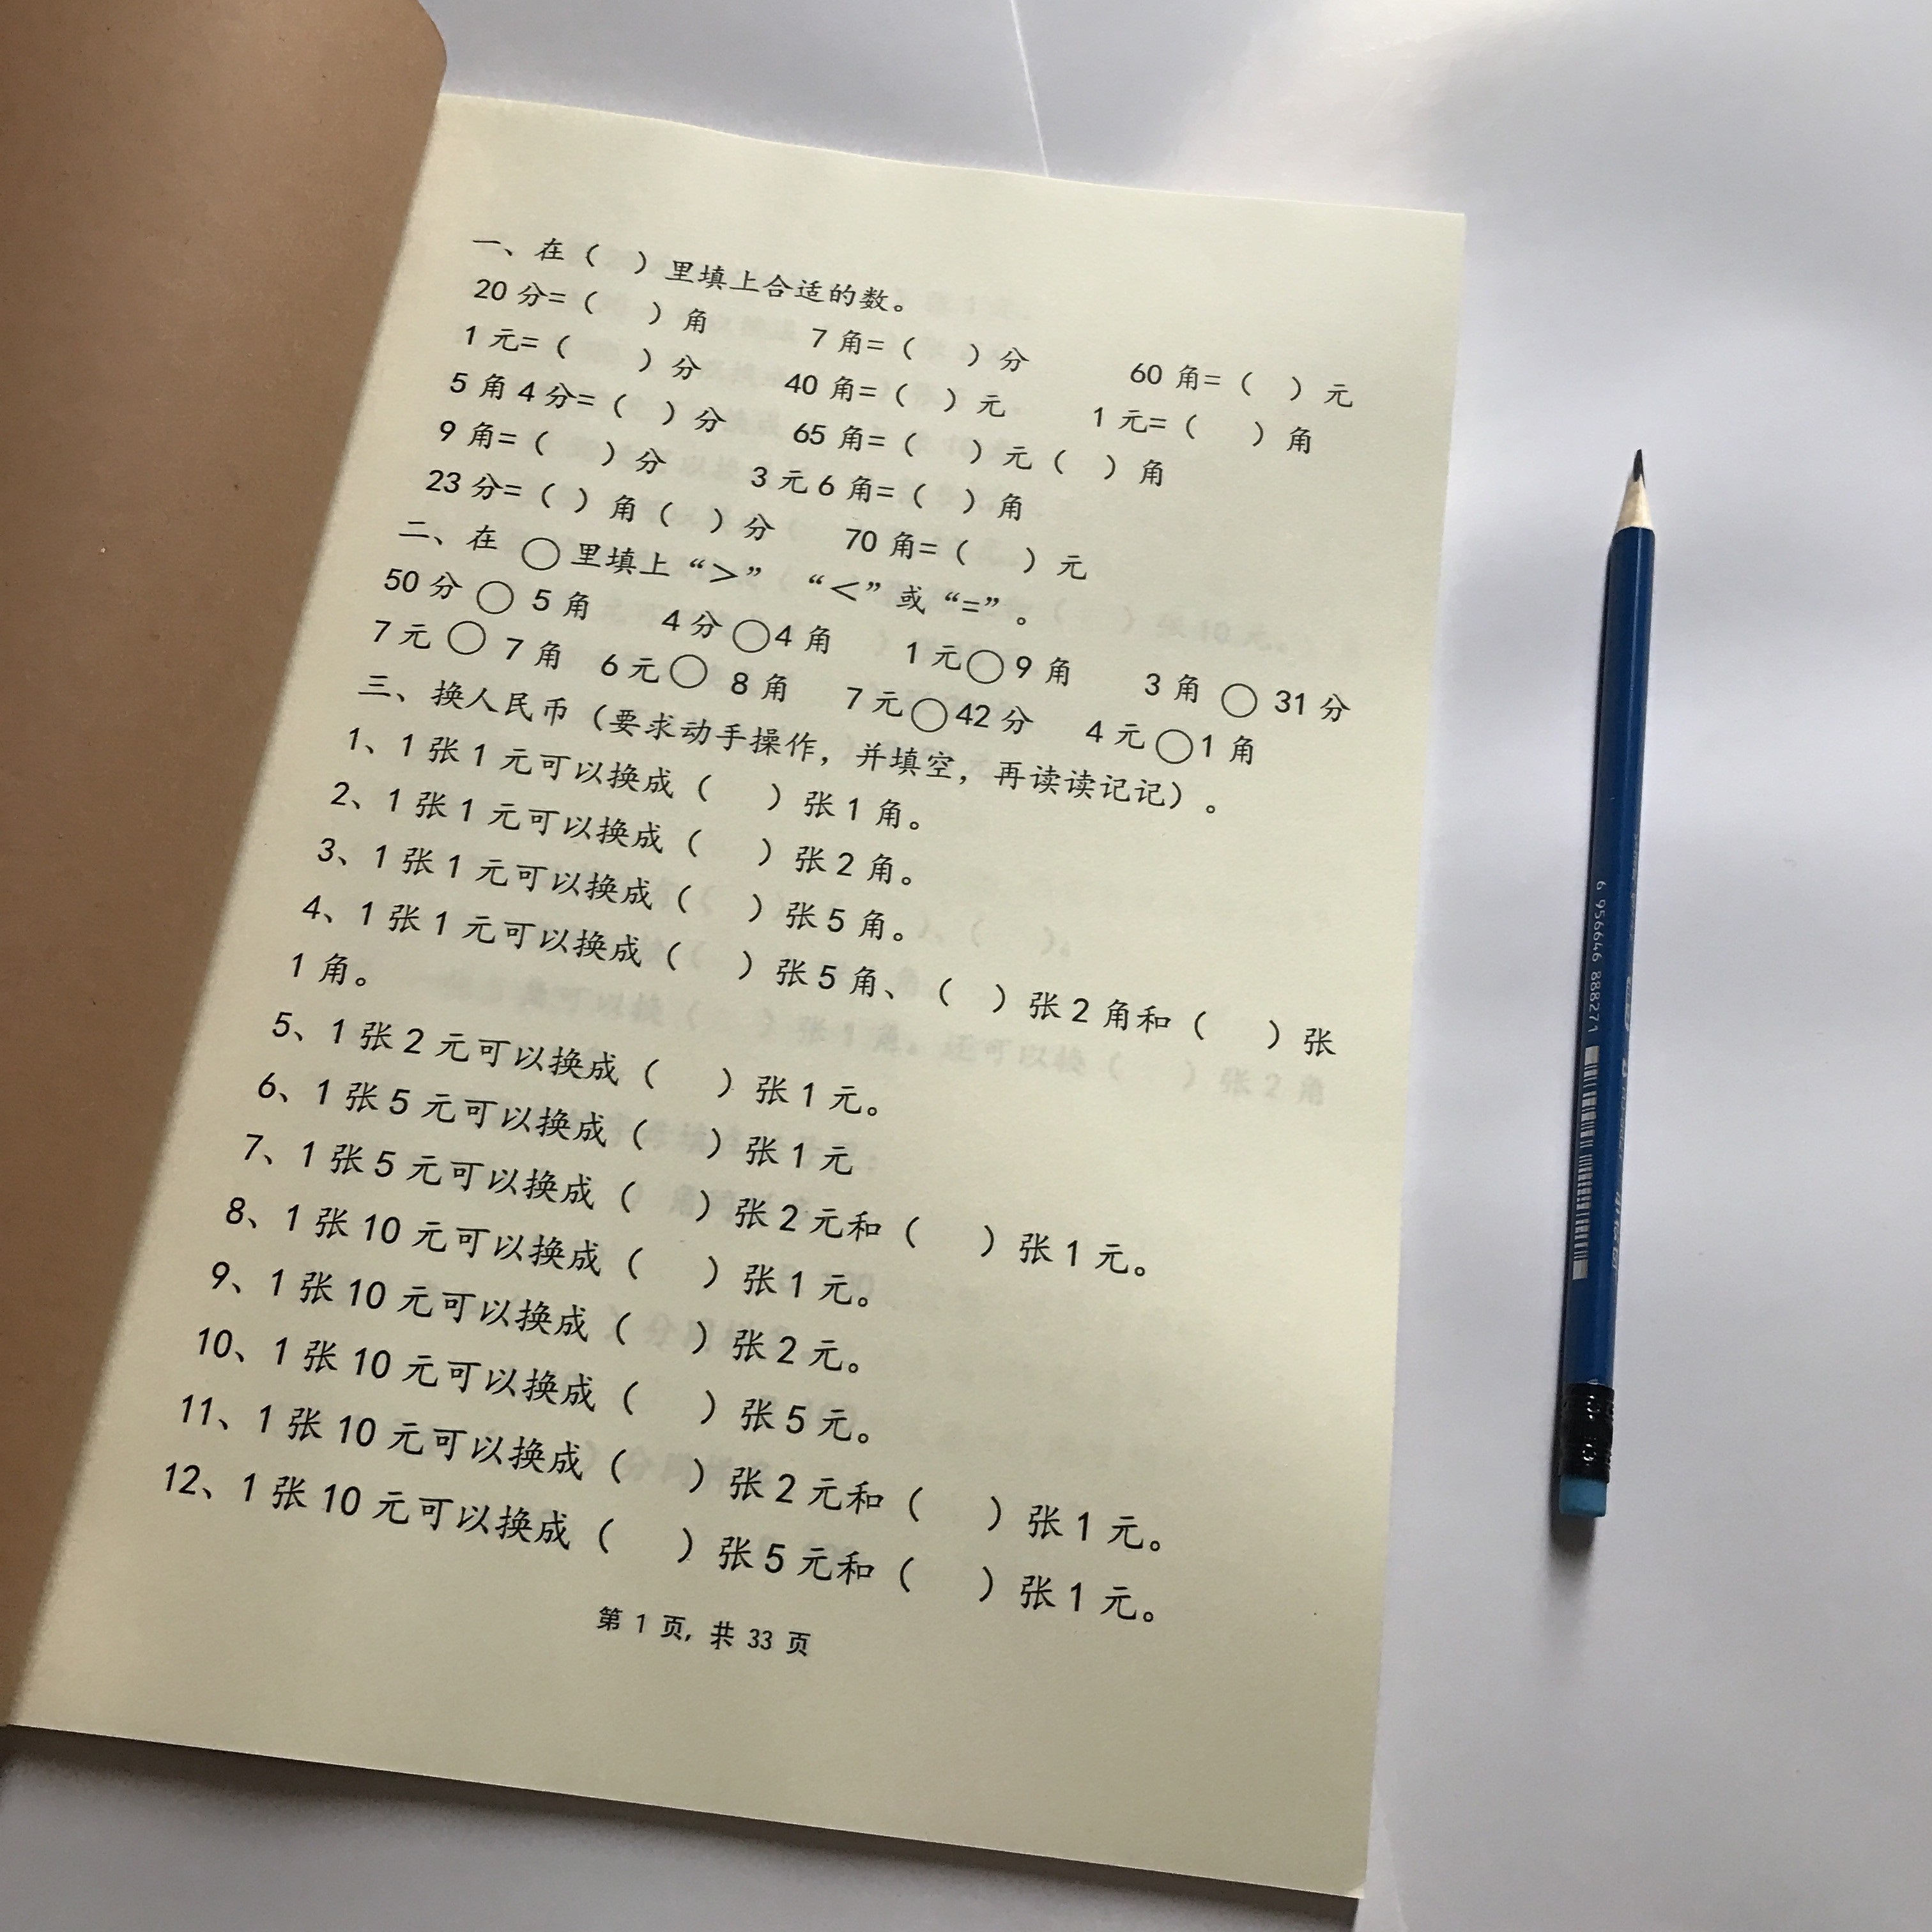 一、在（ ）里填上合适的数。
20 分=（ ）角 7 角=（ ）分 60 角=（ ）元
1 元=（ ）分 40 角=（ ）元 1 元=（ ）角
5 角 4 分=（ ）分 65 角=（ ）元（ ）角
9 角=（ ）分 3 元 6 角=（ ）角
23 分=（ ）角（ ）分 70 角=（ ）元
二、在 ○ 里填上“＞” “＜”或“=”。
50 分 ○ 5 角 4 分 ○ 4 角 1 元 ○ 9 角 3 角 ○ 31 分
7 元 ○ 7 角 6 元 ○ 8 角 7 元 ○ 42 分 4 元 ○ 1 角
三、换人民币（要求动手操作，并填空，再读读记记）。
1、1 张 1 元可以换成（ ）张 1 角。
2、1 张 1 元可以换成（ ）张 2 角。
3、1 张 1 元可以换成（ ）张 5 角。
4、1 张 1 元可以换成（ ）张 5 角、（ ）张 2 角和（ ）张
1 角。
5、1 张 2 元可以换成（ ）张 1 元。
6、1 张 5 元可以换成（ ）张 1 元
7、1 张 5 元可以换成（ ）张 2 元和（ ）张 1 元。
8、1 张 10 元可以换成（ ）张 1 元。
9、1 张 10 元可以换成（ ）张 2 元。
10、1 张 10 元可以换成（ ）张 5 元。
11、1 张 10 元可以换成（ ）张 2 元和（ ）张 1 元。
12、1 张 10 元可以换成（ ）张 5 元和（ ）张 1 元。
第 1 页, 共 33 页
6 956646 888271